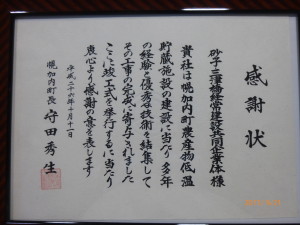 感謝状
砂子・三津橋経常建設共同企業体 様
貴社は幌加内町農産物低温
貯蔵施設の建設に当たり多年
の経験と優秀な技術を結集して
その工事の完成に寄与されました
ここに竣工式を挙行するに当たり
衷心より感謝の意を表します
平成二十六年十月十一日
幌加内町長 守田秀生